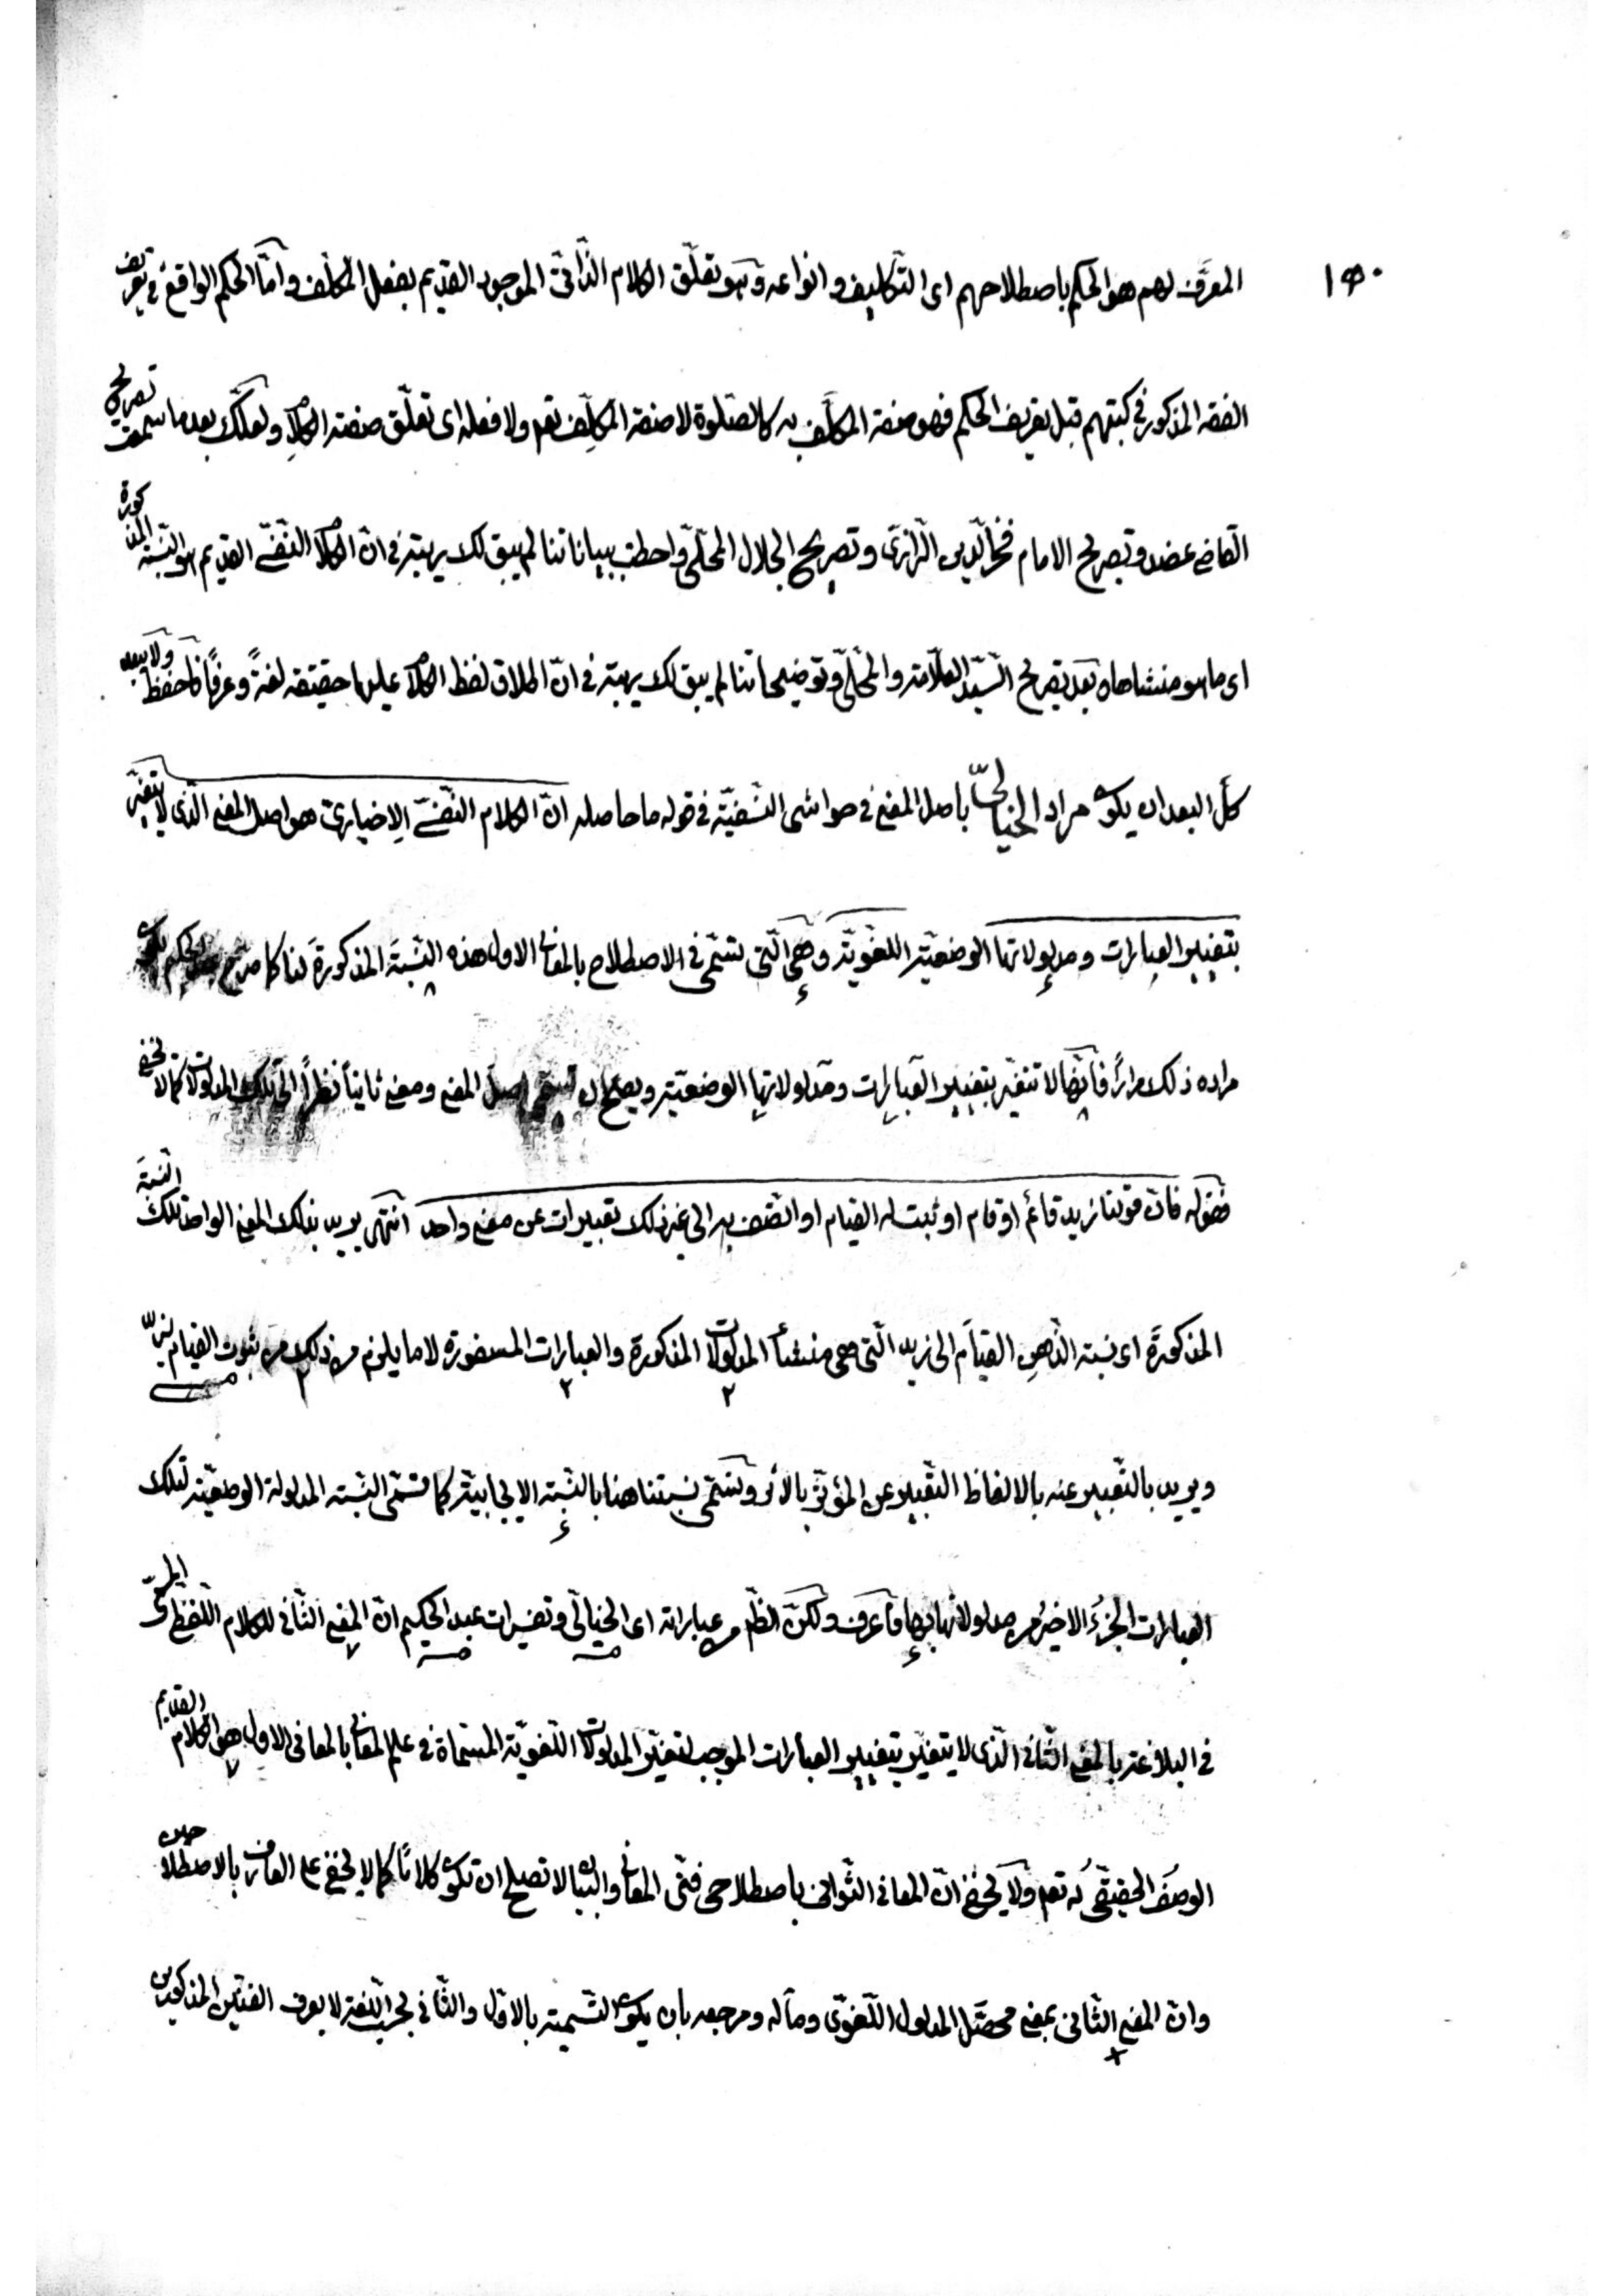 ١٥٠
المعرّف لهم هو الحكم باصطلاحهم اى التّكاليف وانواعه وهو تعلّق الكلام الذّاتىّ الموجود القديم بفعل المكلّف وامّا الحكم الواقع فى تعريف
الفقه المذكور فى كتبهم قبل تعريف الحكم فهو صفة المكلَّف به كالصّلوة لا صفة المكلِّف تعم ولا فعله اى تعلّق صفته الكلام ولعلّك بعد ما سمعت تصريح
القاضى عضد وتصريح الامام فخر الّدين الّرازىّ وتصريح الجلال المحلّىّ واحطت ببياناتنا لم يبق لك ريبة فى انّ الكلام النّفسّى القديم هو النّسبة المذكورة
اى ما هو منشاها وبعد تصريح السّيّد العلاّمة والمحلّىّ وتوضيحاتنا لم يبق لك ريبة فى انّ اطلاق لفظ الكلام عليها حقيقة لغةً وعرفًا فاحفظ ولا يبعد
كلّ البعد ان يكون مراد الخيالىّ باصل المعنى فى حواشى النّسفيّة فى قوله ما حاصله انّ الكلام النّفسّى الاخبارىّ هو اصل المعنى الّذى لا يتغيّر
بتغيير العبارات ومدلولاتها الوضعيّة اللغويّة وهى الّتى تسّمى فى الاصطلاح بالمعانى الاول هذه النّسبة المذكورة لنا كما صرّح
مراده ذلك مرارًا فانّها لا تتغيّر بتغيير العبارات ومدلولاتها الوضعيّة ويصحّ ان تسمّى اصل المعنى ومعنى ثانيًا نظرًا الى تلك المدلولات كما لا يخفى
فقوله فانّ قولنا زيد قائم او قام او ثبت له القيام او اتّصف به الى غير ذلك تعبيرات عن معنى واحد انتهى يريد بذلك المعنى الواحد تلك النّسبة
المذكورة اى نسبة الذّهن القيام الى زيد الّتى هى منشأ المدلولات المذكورة والعبارات المسفورة لا ما يلزم من ذلك من ثبوت القيام لزيد
ويريد بالتّعبير عنه بالالفاظ التّعبير عن المؤثّر بالاثر وتسّمى نسبتنا هنا بالنّسبة الايجابيّة كما تسّمى النّسبة المدلولة الوضعيّة لتلك
العبارات الجزءُ الاخيرُ من مدلولاتها بها فاعرف ولكنّ الظّم من عباراته اى الخيالىّ وتفسيرات عبد الحكيم انّ المعنى الثّانى للكلام اللّفظىّ
فى البلاغة بالمعنى الثّانى الّذى لا يتغيّر بتغيير العبارات الموجب لتغيّر المدلولات اللّغويّة المسّماة فى علم المعانى بالمعانى الاول هو الكلام القديم
الوصف الحقيقىّ له تعم ولا يخفى انّ المعانى الثّوانى باصطلاحى فنّى المعانى والبيان لا تصلح ان تكون كلامًا كما لا يخفى على العارف بالاصطلاحات
وانّ المعنى الثّانى بمعنى محصّل المدلول اللّغوىّ ومآله ومرجعه بان يكون التّسمية بالاوّل والثّانى بحرب اللّغة لا بعرف الفنّين المذكورين